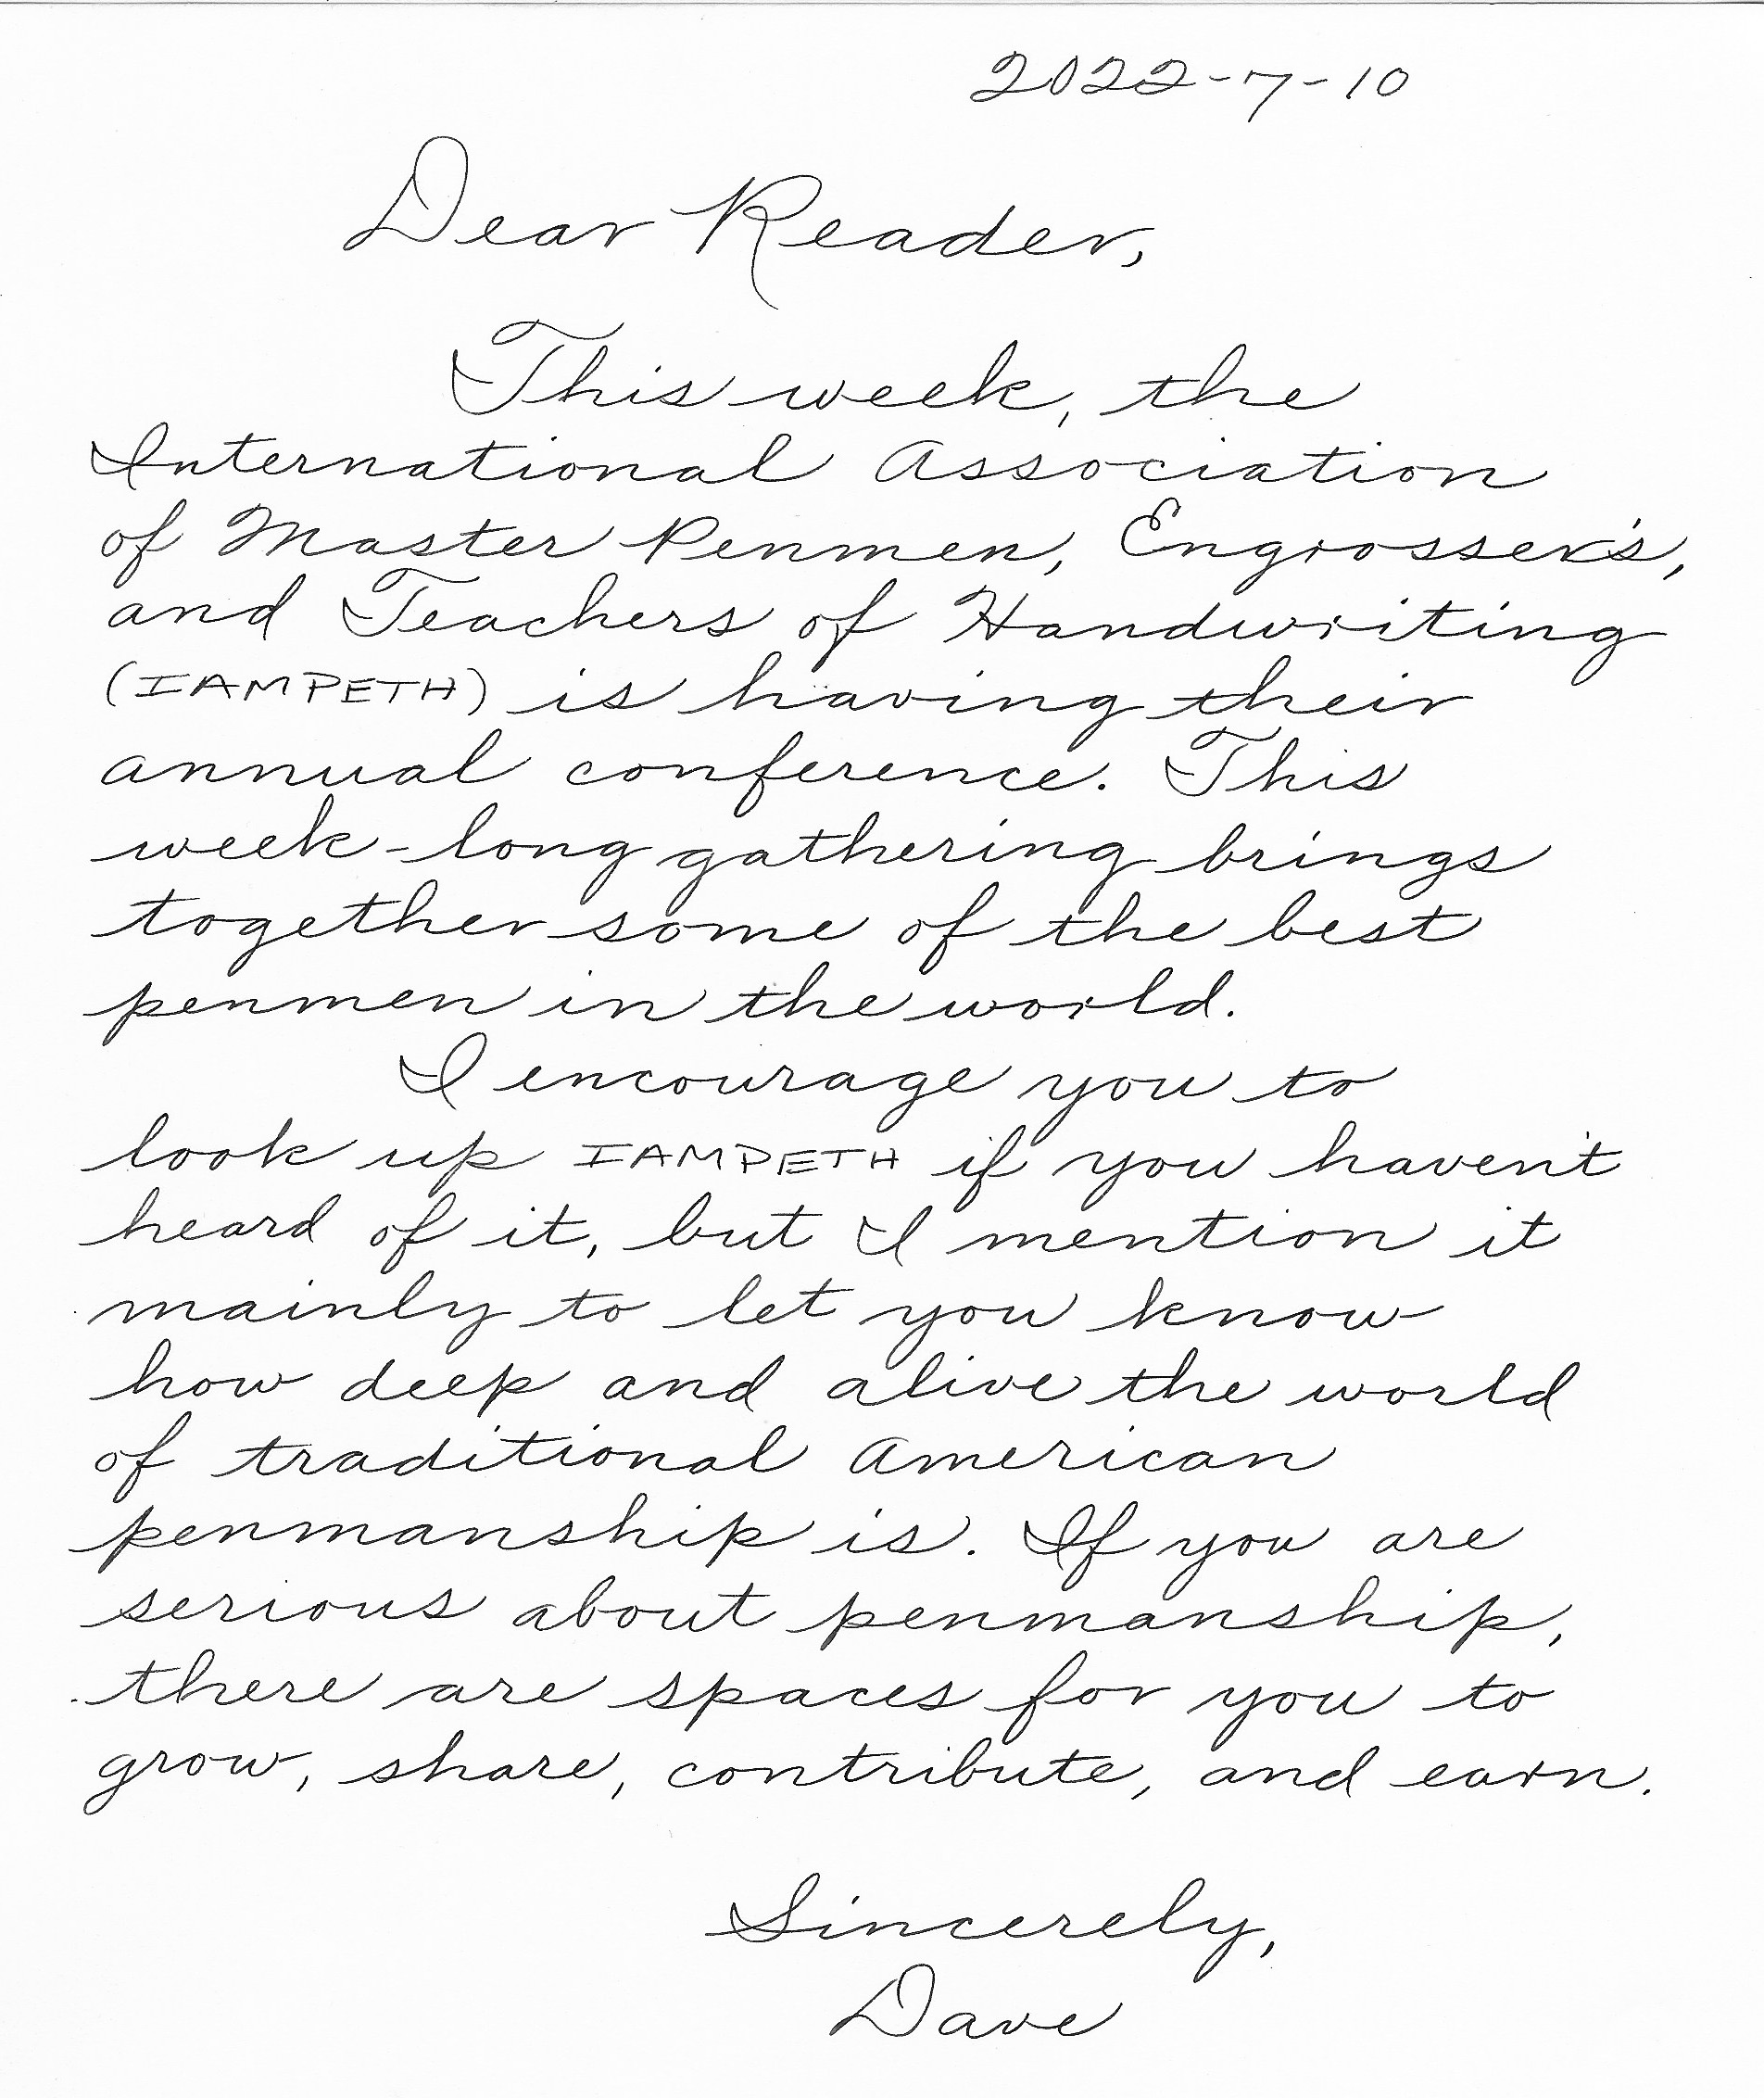 2022-7-10
Dear Reader,
This week, the
International Association
of Master Penmen, Engrosser's,
and Teachers of Handwriting
(IAMPETH) is having their
annual conference. This
week-long gathering brings
together some of the best
penmen in the world.
I encourage you to
look up IAMPETH if you haven't
heard of it, but I mention it
mainly to let you know
how deep and alive the world
of traditional American
penmanship is. If you are
serious about penmanship,
there are spaces for you to
grow, share, contribute, and earn.
Sincerely,
Dave